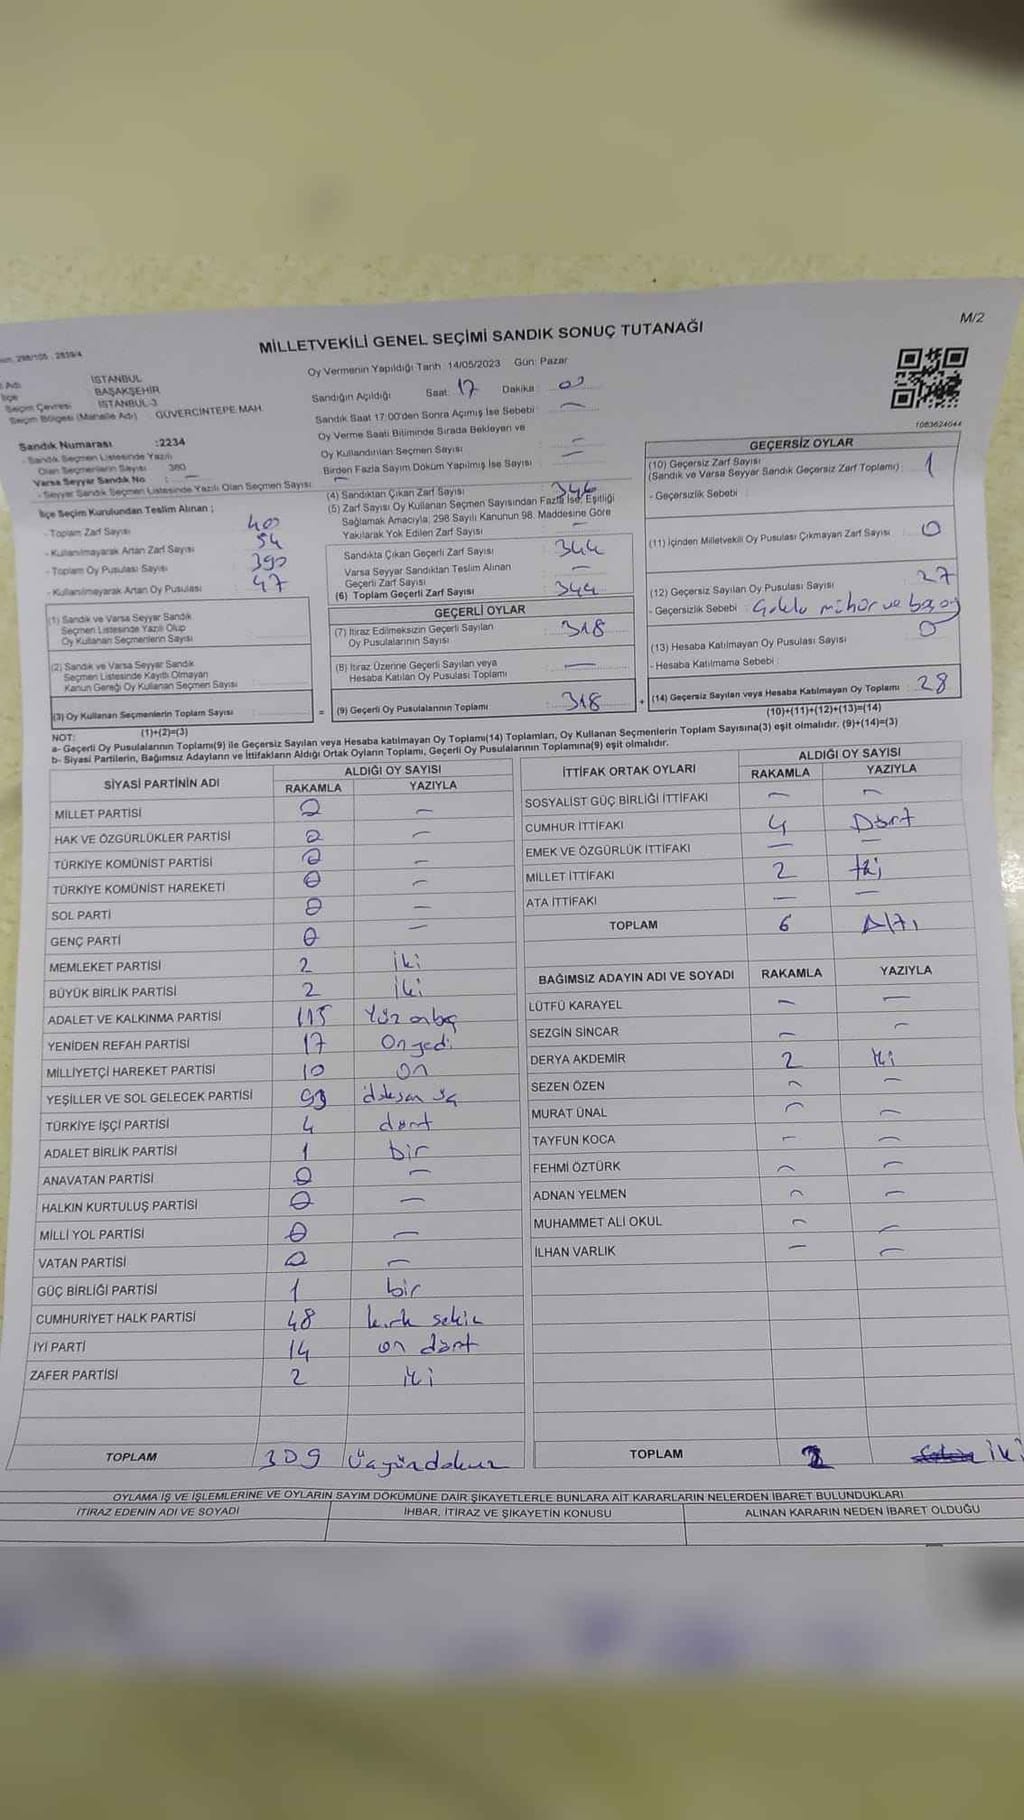 M/2
MİLLETVEKİLİ GENEL SEÇİMİ SANDIK SONUÇ TUTANAĞI
298/105 , 2839/4
Oy Vermenin Yapıldığı Tarih :14/05/2023 Gün: Pazar
Adı İSTANBUL
İlçe BAŞAKŞEHİR
Seçim Çevresi İSTANBUL-3
Seçim Bölgesi (Mahalle Adı) GÜVERCİNTEPE MAH.
Sandık Numarası :2234
- Sandık Seçmen Listesinde Yazılı
Olan Seçmenlerin Sayısı 380
Varsa Seyyar Sandık No : —
- Seyyar Sandık Seçmen Listesinde Yazılı Olan Seçmen Sayısı : —
İlçe Seçim Kurulundan Teslim Alınan ;
- Toplam Zarf Sayısı 400
- Kullanılmayarak Artan Zarf Sayısı 54
- Toplam Oy Pusulası Sayısı 390
- Kullanılmayarak Artan Oy Pusulası 47
(1) Sandık ve Varsa Seyyar Sandık
Seçmen Listesinde Yazılı Olup
Oy Kullanan Seçmenlerin Sayısı
(2) Sandık ve Varsa Seyyar Sandık
Seçmen Listesinde Kayıtlı Olmayan
Kanun Gereği Oy Kullanan Seçmen Sayısı
(3) Oy Kullanan Seçmenlerin Toplam Sayısı
(1)+(2)=(3)
Sandığın Açıldığı Saat 17 Dakika : 00
Sandık Saat 17:00'den Sonra Açımış İse Sebebi : —
Oy Verme Saati Bitiminde Sırada Bekleyen ve
Oy Kullandırılan Seçmen Sayısı : —
Birden Fazla Sayım Döküm Yapılmış İse Sayısı : —
(4) Sandıktan Çıkan Zarf Sayısı 346
(5) Zarf Sayısı Oy Kullanan Seçmen Sayısından Fazla İse, Eşitliği
Sağlamak Amacıyla, 298 Sayılı Kanunun 98. Maddesine Göre
Yakılarak Yok Edilen Zarf Sayısı —
Sandıkta Çıkan Geçerli Zarf Sayısı 344
Varsa Seyyar Sandıktan Teslim Alınan
Geçerli Zarf Sayısı —
(6) Toplam Geçerli Zarf Sayısı 344
GEÇERLİ OYLAR
(7) İtiraz Edilmeksizin Geçerli Sayılan
Oy Pusulalarının Sayısı 318
(8) İtiraz Üzerine Geçerli Sayılan veya
Hesaba Katılan Oy Pusulası Toplamı —
= (9) Geçerli Oy Pusulalarının Toplamı : 318 +
1083624044
GEÇERSİZ OYLAR
(10) Geçersiz Zarf Sayısı
(Sandık ve Varsa Seyyar Sandık Geçersiz Zarf Toplamı) : 1
- Geçersizlik Sebebi :
(11) İçinden Milletvekili Oy Pusulası Çıkmayan Zarf Sayısı 0
(12) Geçersiz Sayılan Oy Pusulası Sayısı 27
- Geçersizlik Sebebi : mühür ve boş oy
(13) Hesaba Katılmayan Oy Pusulası Sayısı 0
- Hesaba Katılmama Sebebi :
(14) Geçersiz Sayılan veya Hesaba Katılmayan Oy Toplamı : 28
(10)+(11)+(12)+(13)=(14)
NOT:
a- Geçerli Oy Pusulalarının Toplamı(9) ile Geçersiz Sayılan veya Hesaba katılmayan Oy Toplamı(14) Toplamları, Oy Kullanan Seçmenlerin Toplam Sayısına(3) eşit olmalıdır. (9)+(14)=(3)
b- Siyasi Partilerin, Bağımsız Adayların ve İttifakların Aldığı Ortak Oyların Toplamı, Geçerli Oy Pusulalarının Toplamına(9) eşit olmalıdır.
SİYASİ PARTİNİN ADI ALDIĞI OY SAYISI
RAKAMLA YAZIYLA
MİLLET PARTİSİ 0 —
HAK VE ÖZGÜRLÜKLER PARTİSİ 0 —
TÜRKİYE KOMÜNİST PARTİSİ 0 —
TÜRKİYE KOMÜNİST HAREKETİ 0 —
SOL PARTİ 0 —
GENÇ PARTİ 0 —
MEMLEKET PARTİSİ 2 iki
BÜYÜK BİRLİK PARTİSİ 2 iki
ADALET VE KALKINMA PARTİSİ 115 Yüz onbeş
YENİDEN REFAH PARTİSİ 17 On yedi
MİLLİYETÇİ HAREKET PARTİSİ 10 on
YEŞİLLER VE SOL GELECEK PARTİSİ 93 doksan üç
TÜRKİYE İŞÇİ PARTİSİ 4 dört
ADALET BİRLİK PARTİSİ 1 bir
ANAVATAN PARTİSİ 0 —
HALKIN KURTULUŞ PARTİSİ 0 —
MİLLİ YOL PARTİSİ 0 —
VATAN PARTİSİ 0 —
GÜÇ BİRLİĞİ PARTİSİ 1 bir
CUMHURİYET HALK PARTİSİ 48 kırk sekiz
İYİ PARTİ 14 on dört
ZAFER PARTİSİ 2 iki
TOPLAM 309 Üçyüzdokuz
İTTİFAK ORTAK OYLARI ALDIĞI OY SAYISI
RAKAMLA YAZIYLA
SOSYALİST GÜÇ BİRLİĞİ İTTİFAKI — —
CUMHUR İTTİFAKI 4 Dört
EMEK VE ÖZGÜRLÜK İTTİFAKI — —
MİLLET İTTİFAKI 2 İki
ATA İTTİFAKI — —
TOPLAM 6 Altı
BAĞIMSIZ ADAYIN ADI VE SOYADI RAKAMLA YAZIYLA
LÜTFÜ KARAYEL — —
SEZGİN SİNCAR — —
DERYA AKDEMİR 2 iki
SEZEN ÖZEN — —
MURAT ÜNAL — —
TAYFUN KOCA — —
FEHMİ ÖZTÜRK — —
ADNAN YELMEN — —
MUHAMMET ALİ OKUL — —
İLHAN VARLIK — —
TOPLAM 2 iki
OYLAMA İŞ VE İŞLEMLERİNE VE OYLARIN SAYIM DÖKÜMÜNE DAİR ŞİKAYETLERLE BUNLARA AİT KARARLARIN NELERDEN İBARET BULUNDUKLARI
İTİRAZ EDENİN ADI VE SOYADI İHBAR, İTİRAZ VE ŞİKAYETİN KONUSU ALINAN KARARIN NEDEN İBARET OLDUĞU